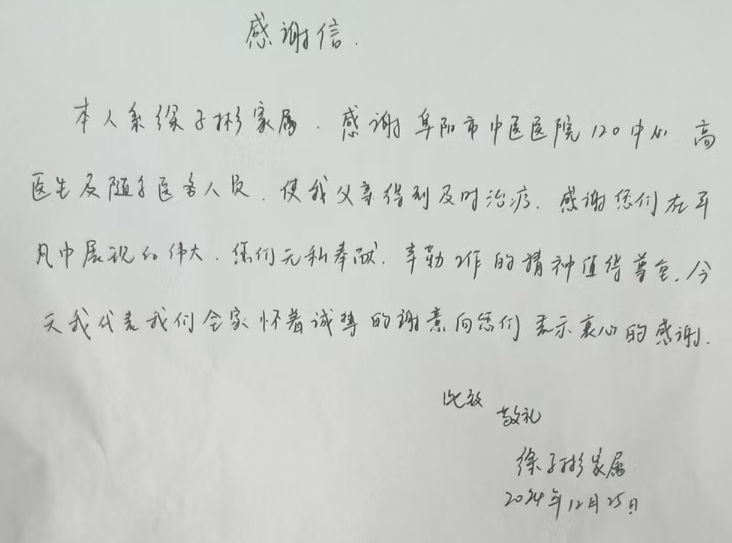 感谢信.
本人系徐子彬家属.感谢阜阳市中医医院120中心 高
医生及随车医务人员.使我父亲得到及时治疗.感谢您们在平
凡中展现的伟大.您们无私奉献.辛勤工作的精神值得尊重.今
天我代表我们全家怀着诚挚的谢意向您们表示衷心的感谢.
此致
敬礼
徐子彬家属
2024年12月25日